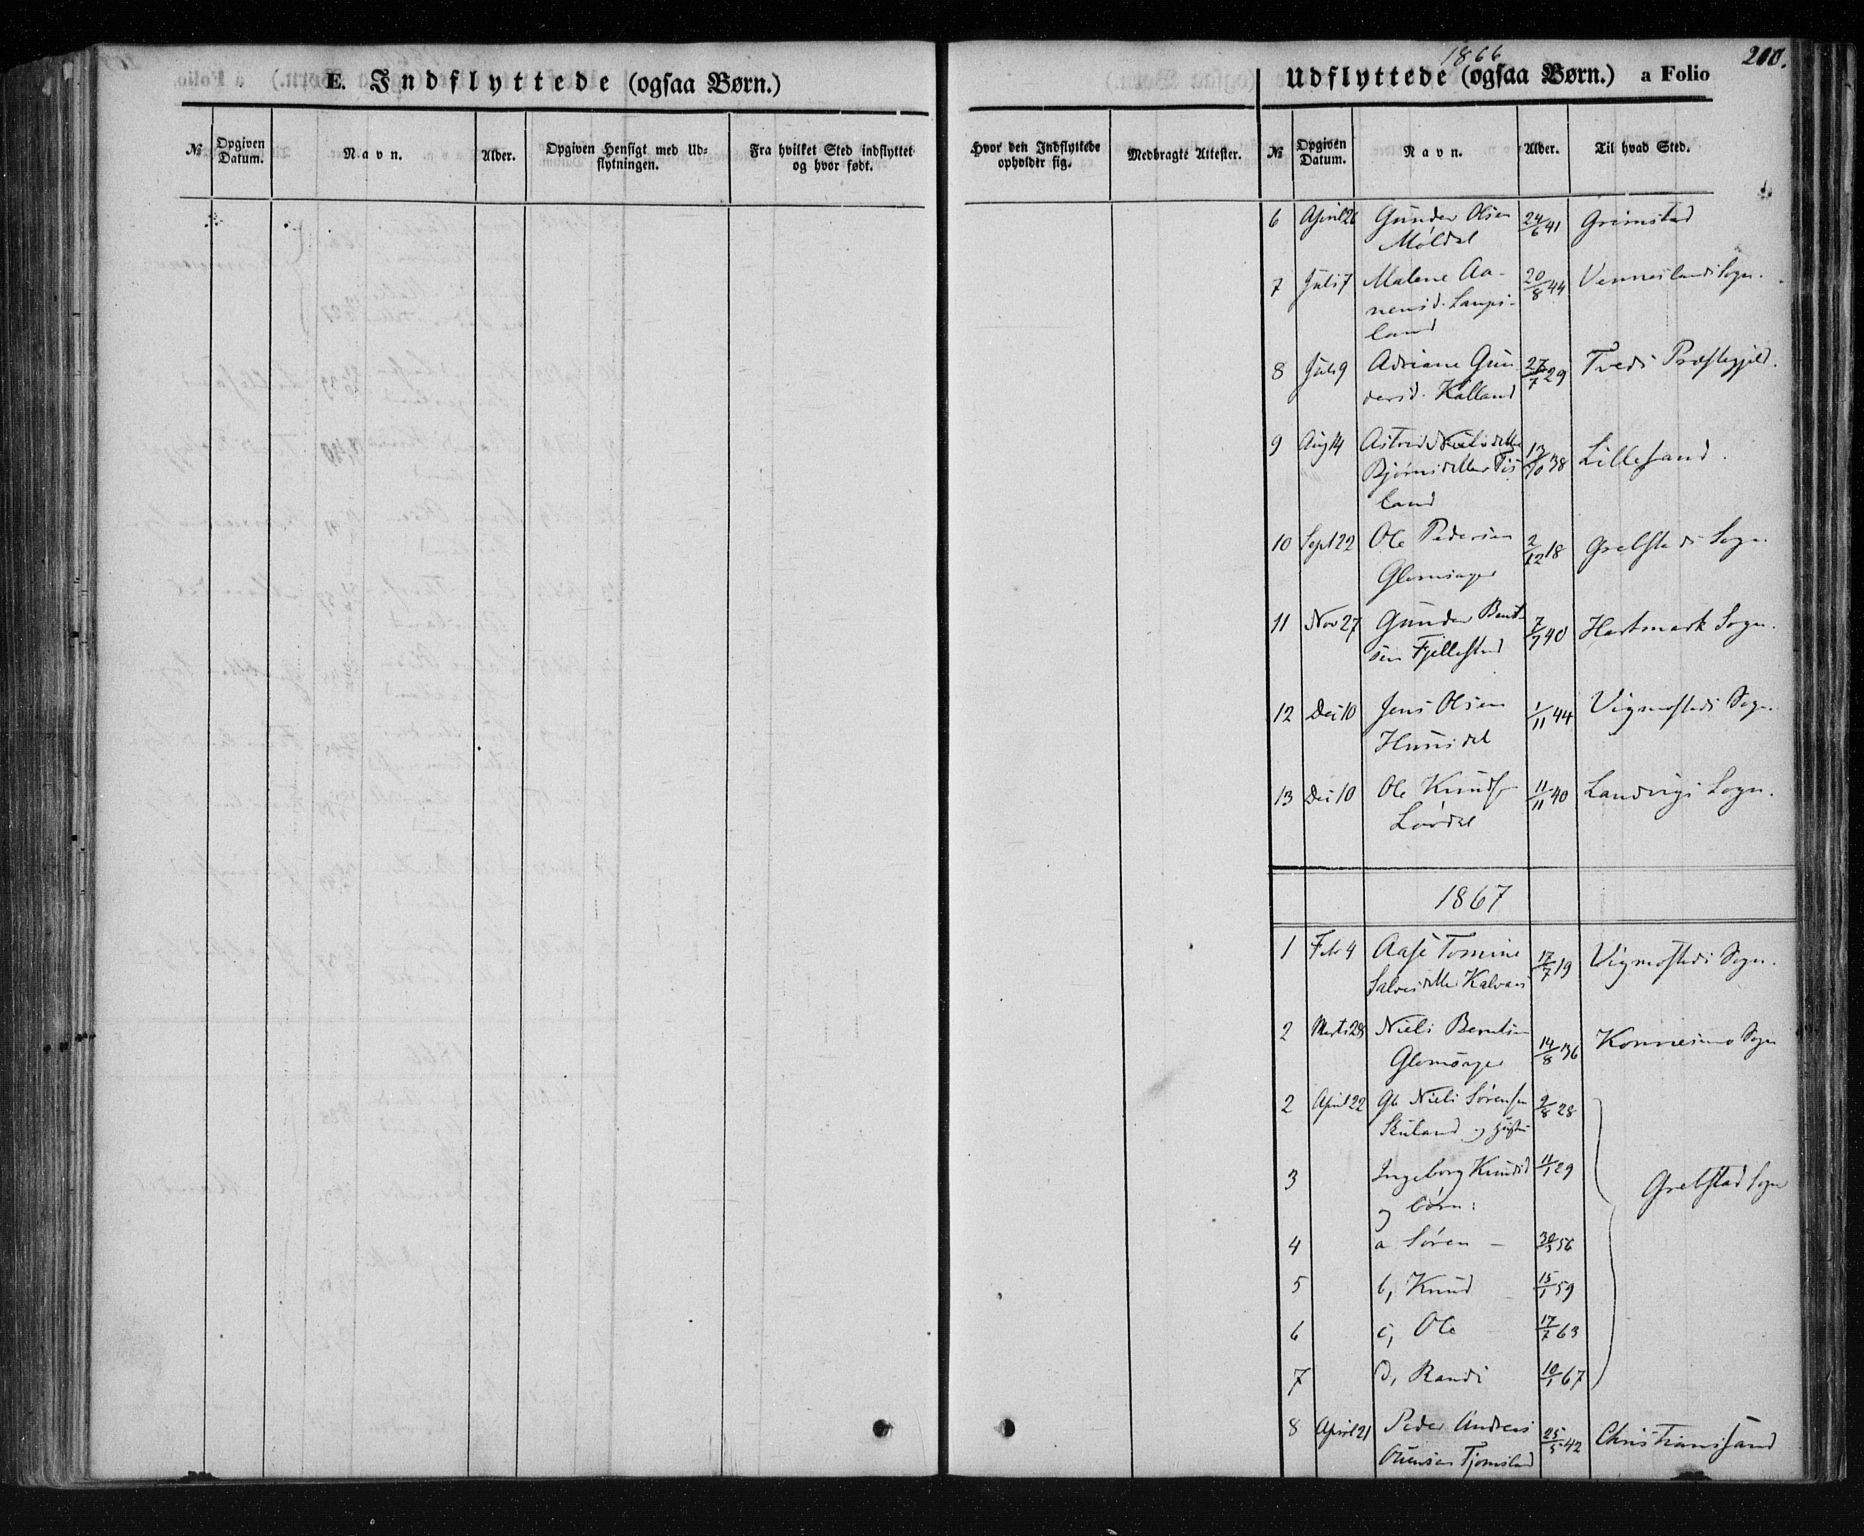 E. Indflyttede (ogsaa Børn.)
No Opgiven Datum. Navn. Alder. Opgiven Hensigt med Udflytningen. Fra hvilket Sted indflyttet og hvor født.
Hvor den Indflyttede opholder sig. Medbragte Attester.
1866
210.
Udflyttede (ogsaa Børn.) a Folio
No Opgiven Datum. Navn. Alder. Til hvad Sted.
6 April 26 Gunder Olsen 24/6 41 Grimstad
Møldal
7 Juli 7 Malene Aa- 20/8 44 Venneslands Sogn.
nensd. Laups-
land
8 Juli 9 Adriane Gun 27/7 29 Tveds Præstegjeld.
dersd. Kalland
9 Aug 14 Astrid 13/10 38 Lillesand.
Bjørnsdatter
land
10 Sept 22 Ole Pedersen 2/12 18 Grebstads Sogn.
Glomsager
11 Nov 27 Gunder Bent 7/7 40 Hartmark Sogn.
sen Fjellestad
12 Dec 10 Jens Olsen 1/11 44 Vigmosteds Sogn.
Hunsdal
13 Dec 10 Ole Knuds 11/11 40 Landvigs Sogn.
Lovdal
1867
1 Febr 4 Aase Tomine 17/7 19 Vigmosteds Sogn.
Salvesdatter
2 Marts 28 Niels Berntsen 14/8 36 Konnesmo Sogn
Glomsager
2 April 22 Niels Sørensen 9/8 28
Skuland og Hustru
3 Ingeborg Knudsd 11/1 29 Grebstad Sogn
og børn:
4 a Søren - 56
5 b, Knud 15/1 59
6 c, Ole 17/7 63
7 d, Randi 10/1 67
8 April 21 Peder Andreas 25/5 42 Christianssand
Ounsen Fjomsland